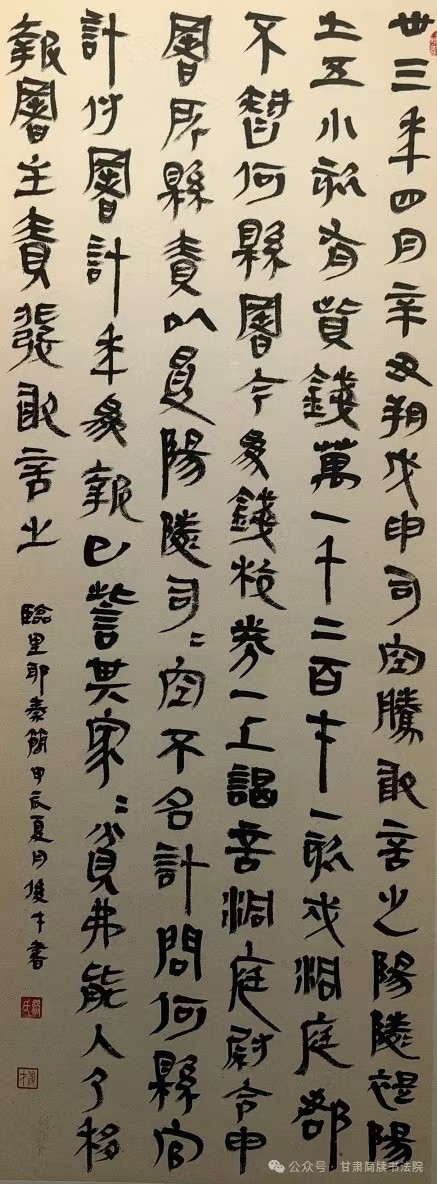 卅三年四月辛丑朔戊申司空騰敢言之陽陵禔陽
士五小欬有貲錢萬一千二百七十一欬戍洞庭郡
不智何縣署今為錢校券一上謁言洞庭尉令申
署所縣責以受陽陵司〻空不名計問何縣官
計付署計年為報已訾其家〻貧弗能入乃移
報署主責發敢言之
臨里耶秦簡甲辰夏月俊才書
公众号 · 甘肃简牍书法院